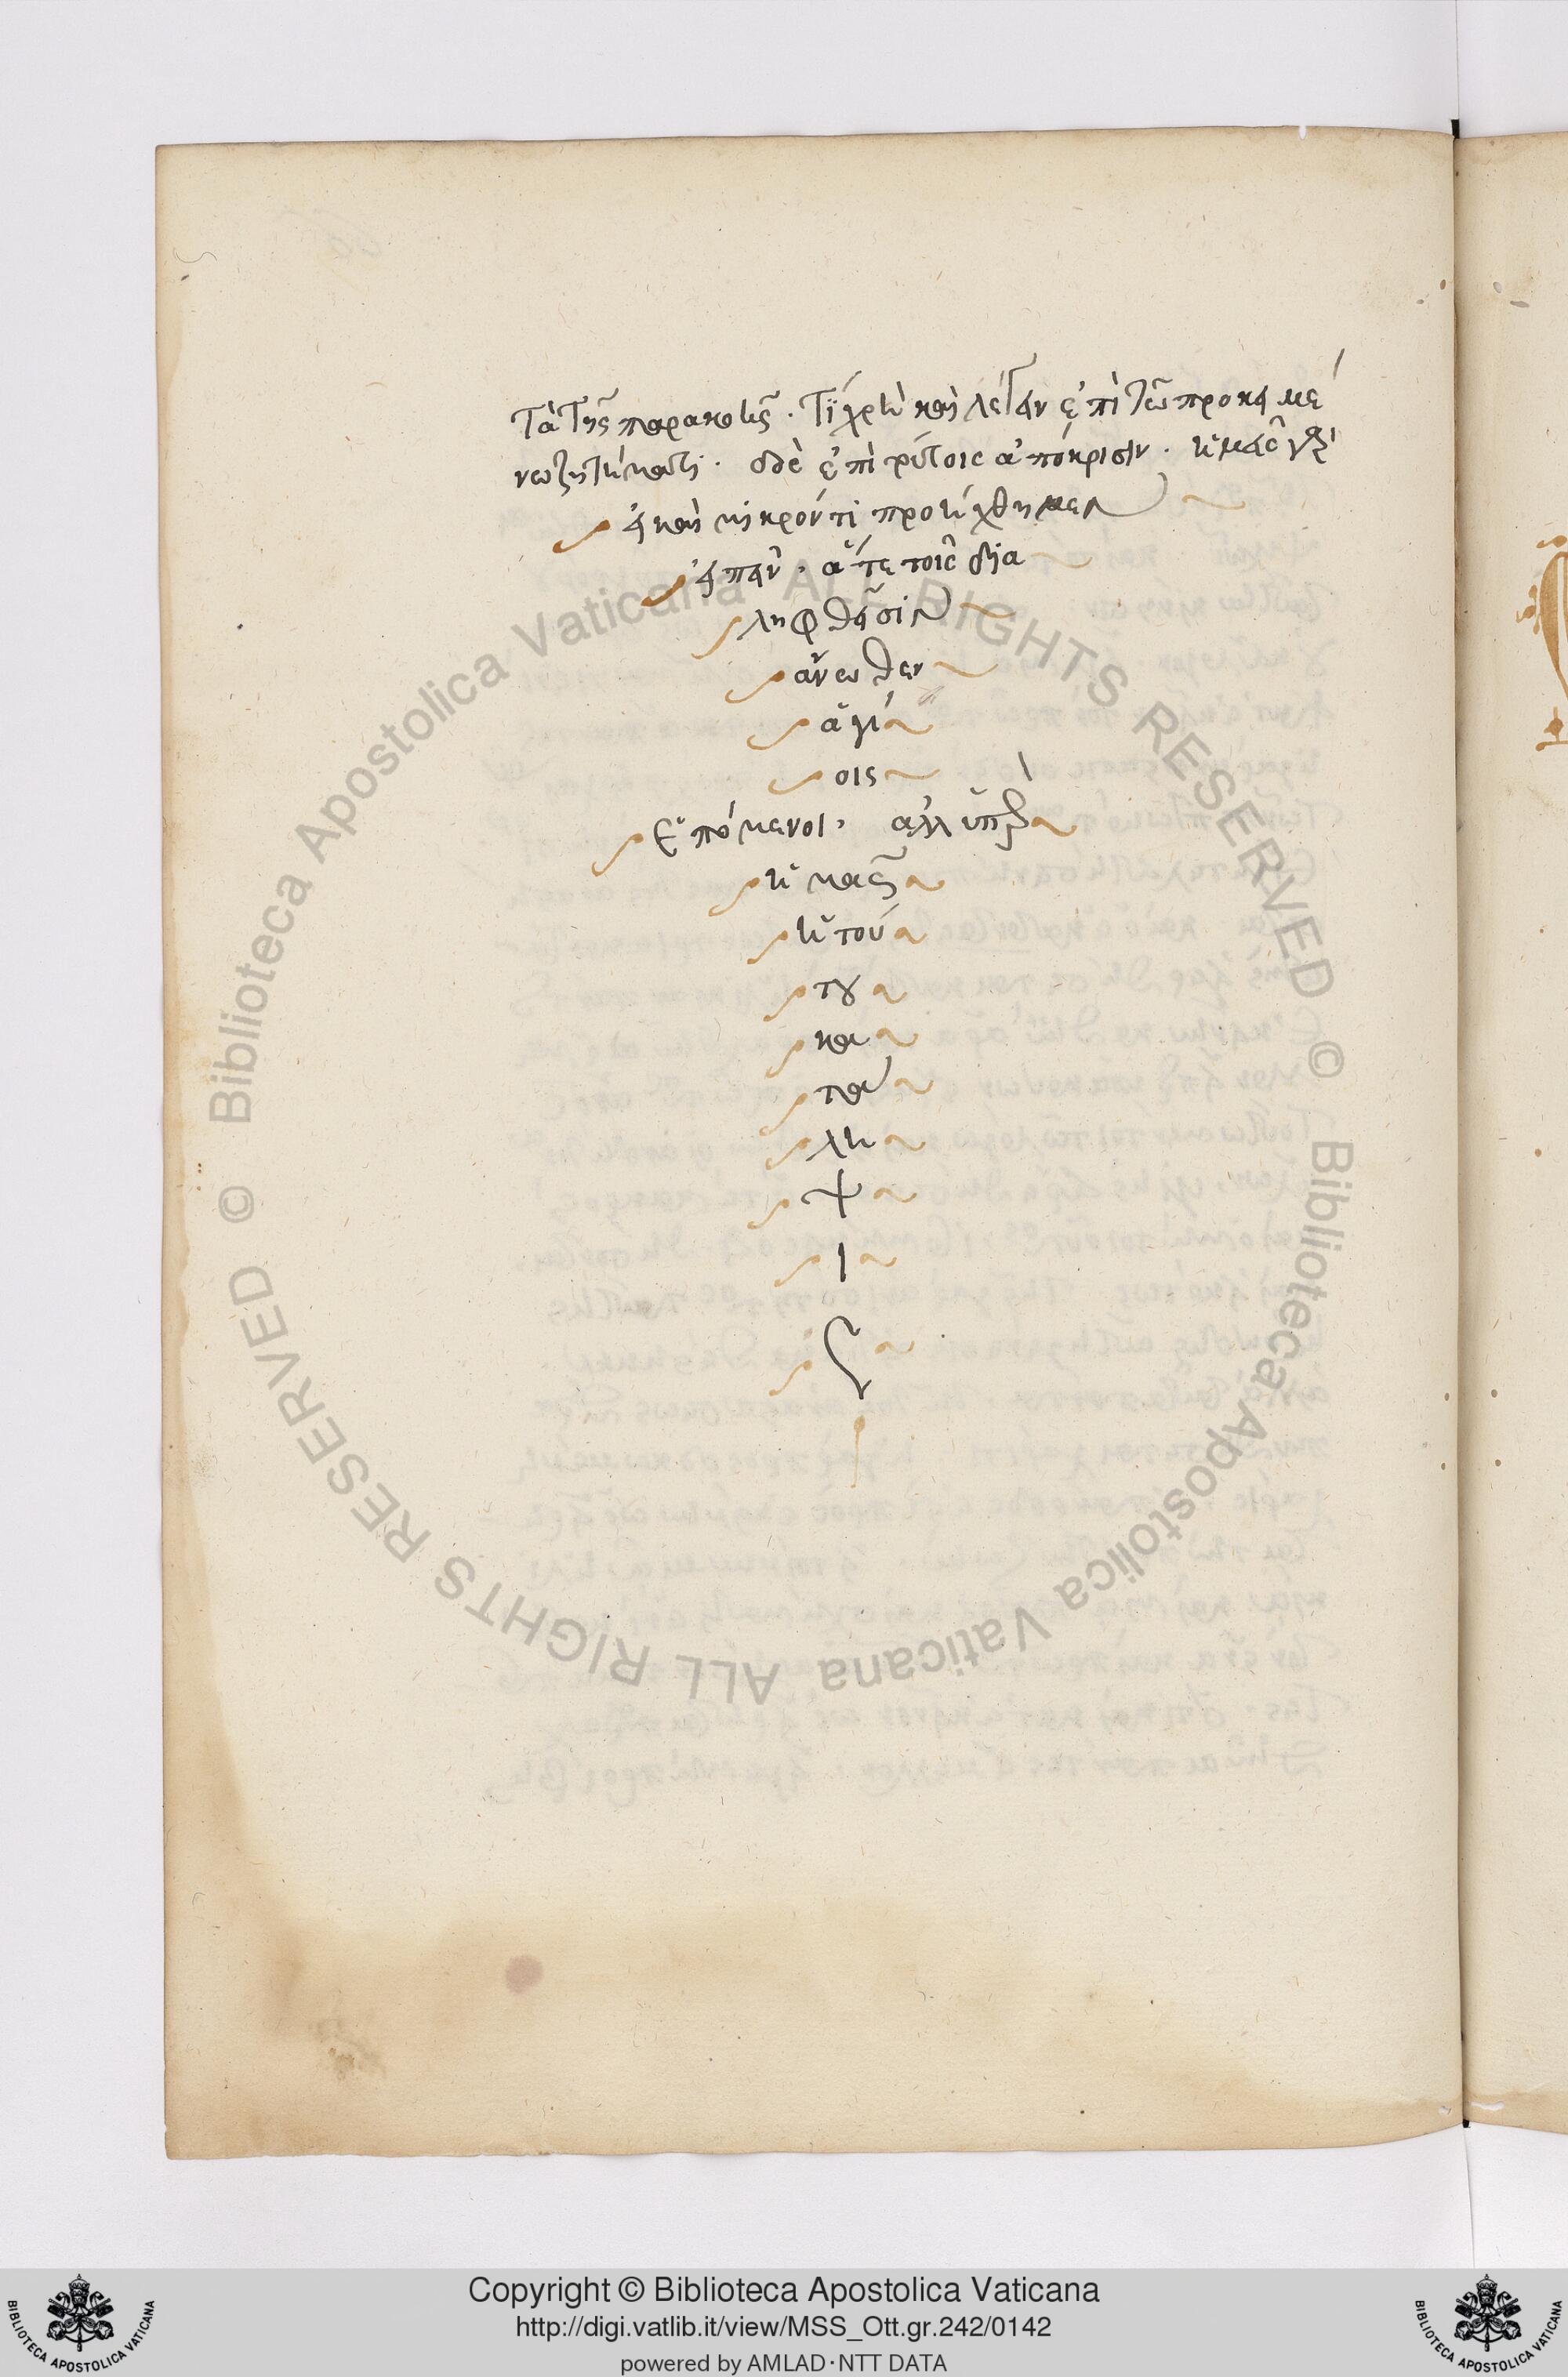 τὰ τῆς παρακοῆς. τί χρὴ καὶ λέγειν ἐπὶ τῶ προκειμέ
νω ζητήματι. ὁ δὲ ἐπὶ τούτοις ἀπόκρισιν. ἡμεῖς γὰρ
εἰ καὶ μικρόν τι προήχθημεν
εἰπεῖν. ἅ τε τοῖς δια
ληφθεῖσιν
ἄνωθεν
ἁγί
οις
ἑπόμενοι. ἀλλ ὑπὲρ
ἡμᾶς
ἡ τού
του
κα
τά
λη
ψ
ι
ς
Copyright © Biblioteca Apostolica Vaticana
http://digi.vatlib.it/view/MSS_Ott.gr.242/0142
powered by AMLAD·NTT DATA
© Biblioteca Apostolica Vaticana ALL RIGHTS RESERVED
© Biblioteca Apostolica Vaticana ALL RIGHTS RESERVED
BIBLIOTECA APOSTOLICA VATICANA
BIBLIOTECA APOSTOLICA VATICANA